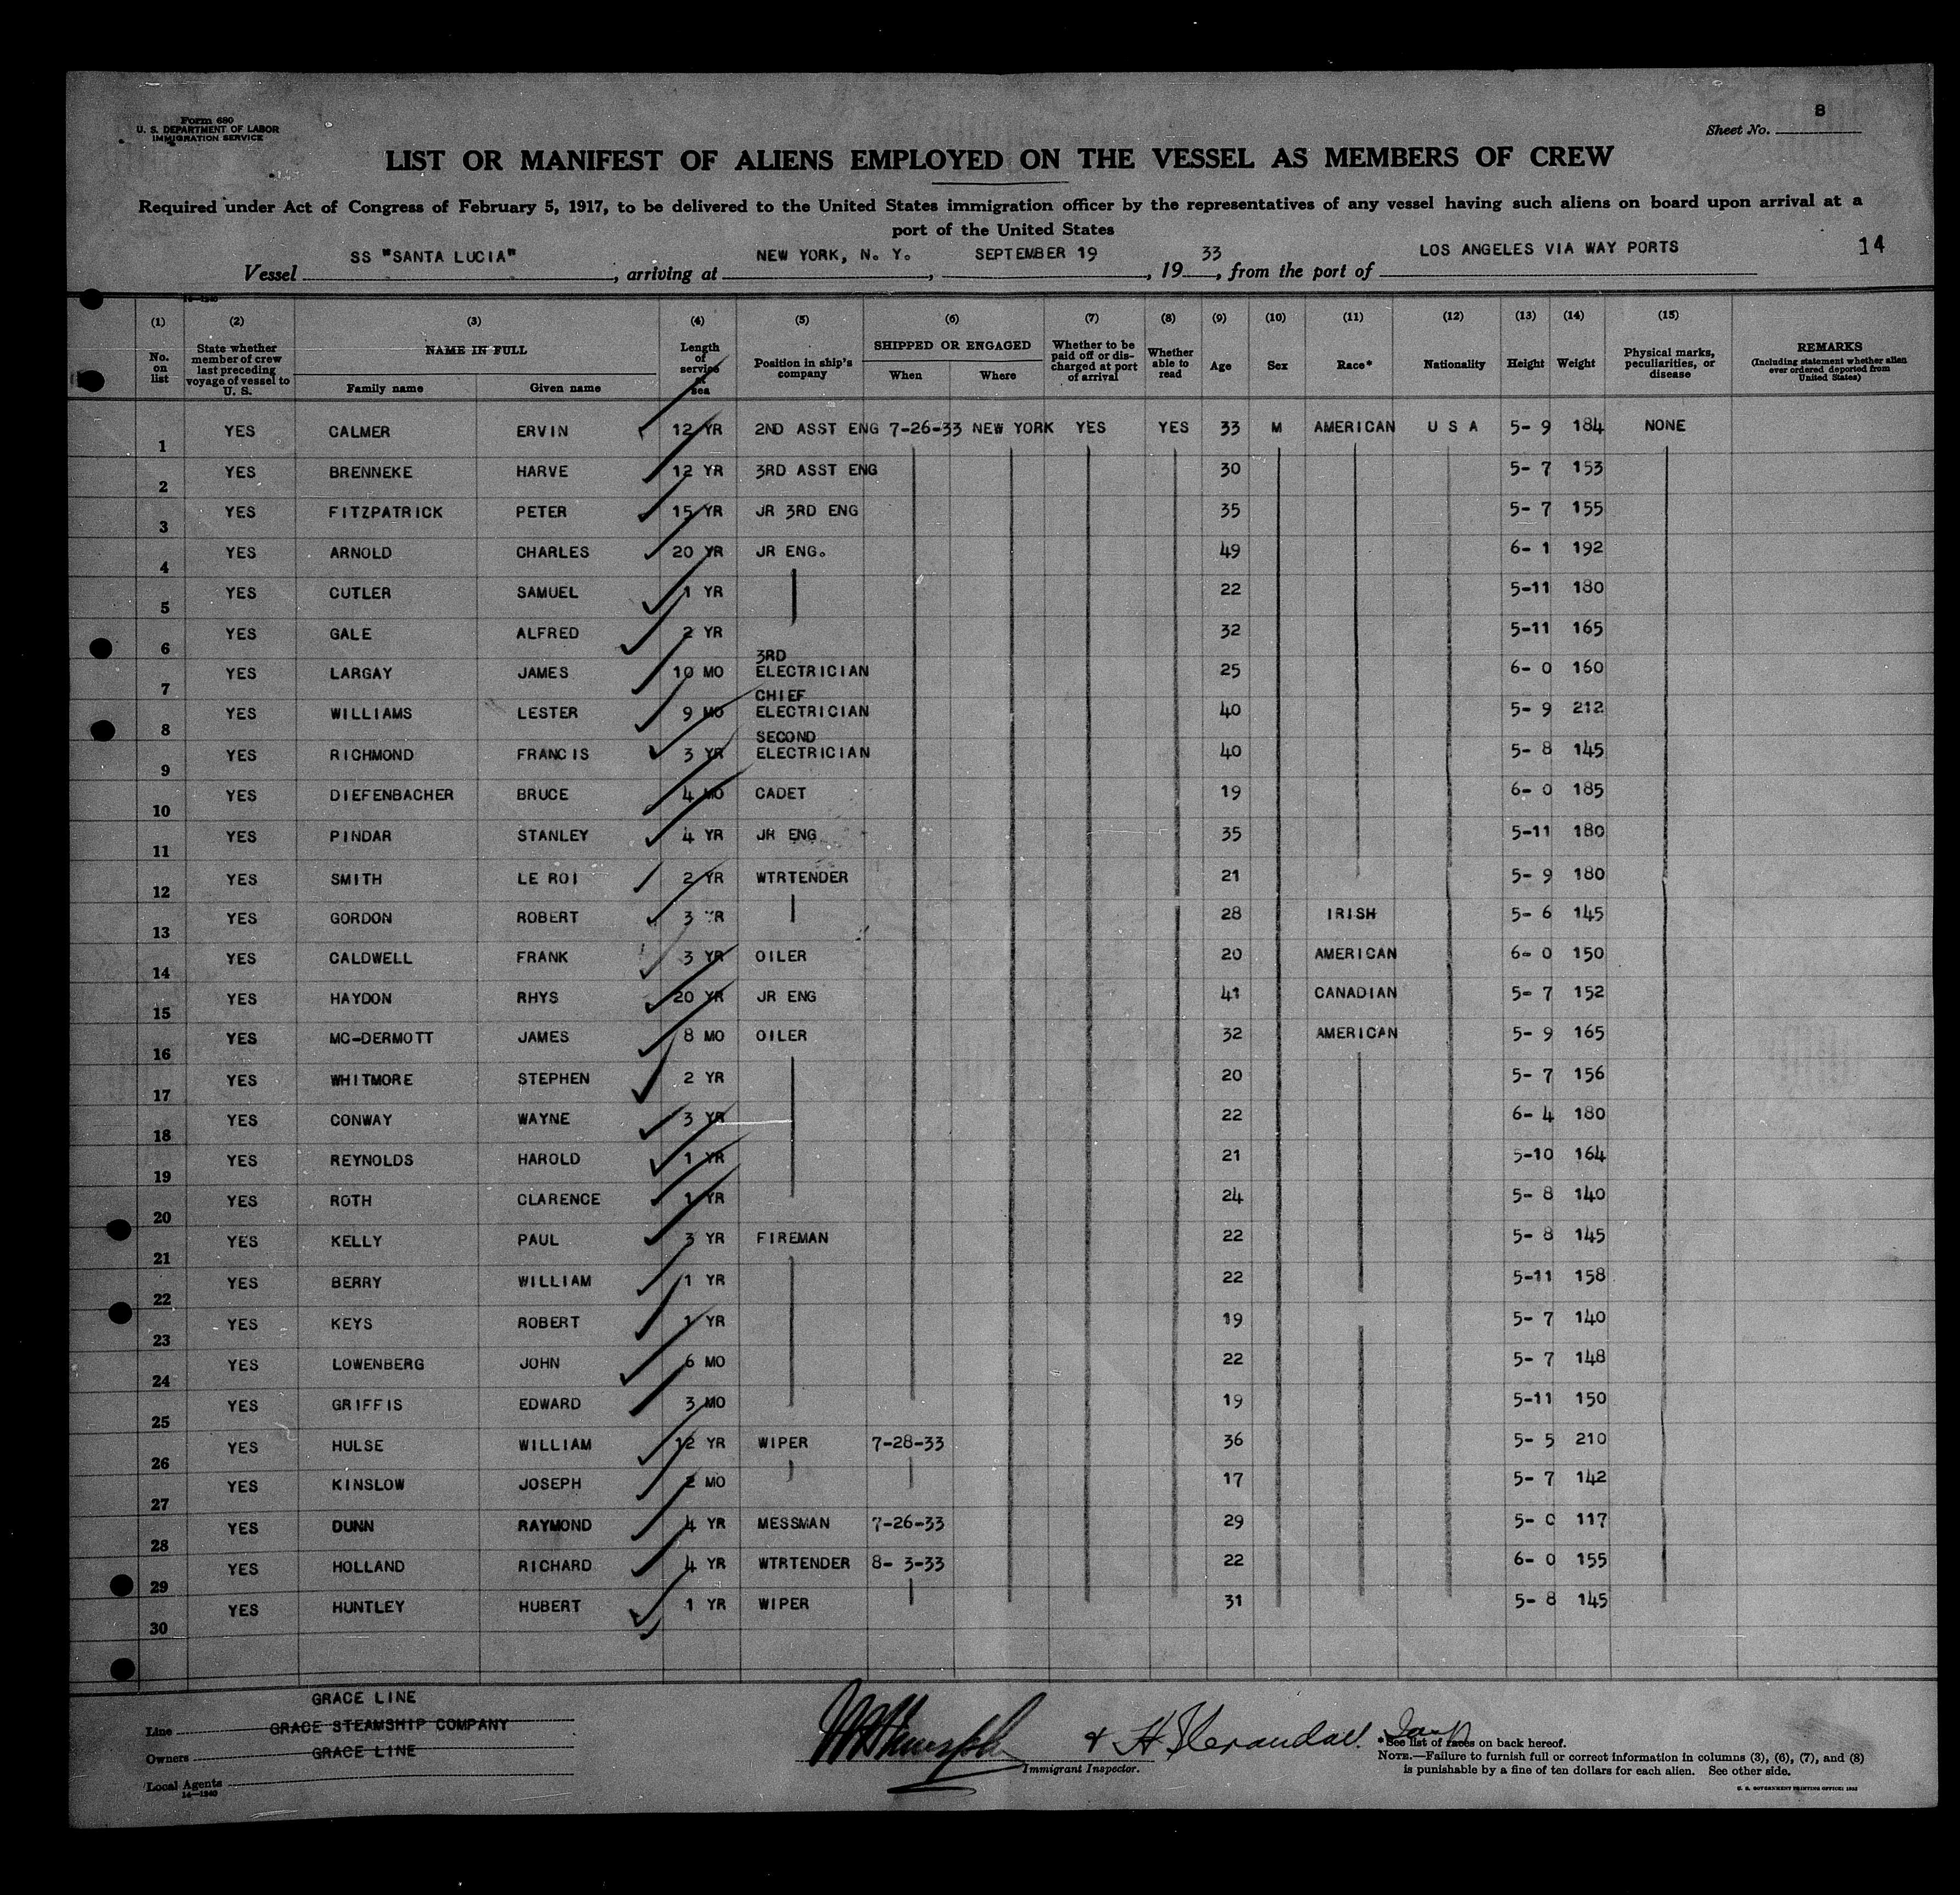 Form 680
U. S. DEPARTMENT OF LABOR
IMMIGRATION SERVICE
8
Sheet No.
LIST OR MANIFEST OF ALIENS EMPLOYED ON THE VESSEL AS MEMBERS OF CREW
Required under Act of Congress of February 5, 1917, to be delivered to the United States immigration officer by the representatives of any vessel having such aliens on board upon arrival at a
port of the United States
Vessel SS "SANTA LUCIA", arriving at NEW YORK, N. Y., SEPTEMBER 19, 1933, from the port of LOS ANGELES VIA WAY PORTS 14
14—1240
(1) (2) (3) (4) (5) (6) (7) (8) (9) (10) (11) (12) (13) (14) (15)
No. on list State whether member of crew last preceding voyage of vessel to U. S. NAME IN FULL Family name Given name Length of service at sea Position in ship's company SHIPPED OR ENGAGED When Where Whether to be paid off or discharged at port of arrival Whether able to read Age Sex Race* Nationality Height Weight Physical marks, peculiarities, or disease REMARKS (Including statement whether alien ever ordered deported from United States)
1 YES CALMER ERVIN 12 YR 2ND ASST ENG 7-26-33 NEW YORK YES YES 33 M AMERICAN U S A 5- 9 184 NONE
2 YES BRENNEKE HARVE 12 YR 3RD ASST ENG 30 5- 7 153
3 YES FITZPATRICK PETER 15 YR JR 3RD ENG 35 5- 7 155
4 YES ARNOLD CHARLES 20 YR JR ENG. 49 6- 1 192
5 YES CUTLER SAMUEL 1 YR 22 5-11 180
6 YES GALE ALFRED 2 YR 32 5-11 165
7 YES LARGAY JAMES 10 MO 3RD ELECTRICIAN 25 6- 0 160
8 YES WILLIAMS LESTER 9 MO CHIEF ELECTRICIAN 40 5- 9 212
9 YES RICHMOND FRANCIS 3 YR SECOND ELECTRICIAN 40 5- 8 145
10 YES DIEFENBACHER BRUCE 4 MO CADET 19 6- 0 185
11 YES PINDAR STANLEY 4 YR JR ENG 35 5-11 180
12 YES SMITH LE ROI 2 YR WTRTENDER 21 5- 9 180
13 YES GORDON ROBERT 3 YR 28 IRISH 5- 6 145
14 YES CALDWELL FRANK 3 YR OILER 20 AMERICAN 6- 0 150
15 YES HAYDON RHYS 20 YR JR ENG 41 CANADIAN 5- 7 152
16 YES MC-DERMOTT JAMES 8 MO OILER 32 AMERICAN 5- 9 165
17 YES WHITMORE STEPHEN 2 YR 20 5- 7 156
18 YES CONWAY WAYNE 3 YR 22 6- 4 180
19 YES REYNOLDS HAROLD 1 YR 21 5-10 164
20 YES ROTH CLARENCE 1 YR 24 5- 8 140
21 YES KELLY PAUL 3 YR FIREMAN 22 5- 8 145
22 YES BERRY WILLIAM 1 YR 22 5-11 158
23 YES KEYS ROBERT 1 YR 19 5- 7 140
24 YES LOWENBERG JOHN 6 MO 22 5- 7 148
25 YES GRIFFIS EDWARD 3 MO 19 5-11 150
26 YES HULSE WILLIAM 12 YR WIPER 7-28-33 36 5- 5 210
27 YES KINSLOW JOSEPH 2 MO 17 5- 7 142
28 YES DUNN RAYMOND 4 YR MESSMAN 7-26-33 29 5- 0 117
29 YES HOLLAND RICHARD 4 YR WTRTENDER 8- 3-33 22 6- 0 155
30 YES HUNTLEY HUBERT 1 YR WIPER 31 5- 8 145
GRACE LINE
Line GRACE STEAMSHIP COMPANY
Owners GRACE LINE
Local Agents
14—1240
Immigrant Inspector.
*See list of races on back hereof.
NOTE.—Failure to furnish full or correct information in columns (3), (6), (7), and (8)
is punishable by a fine of ten dollars for each alien. See other side.